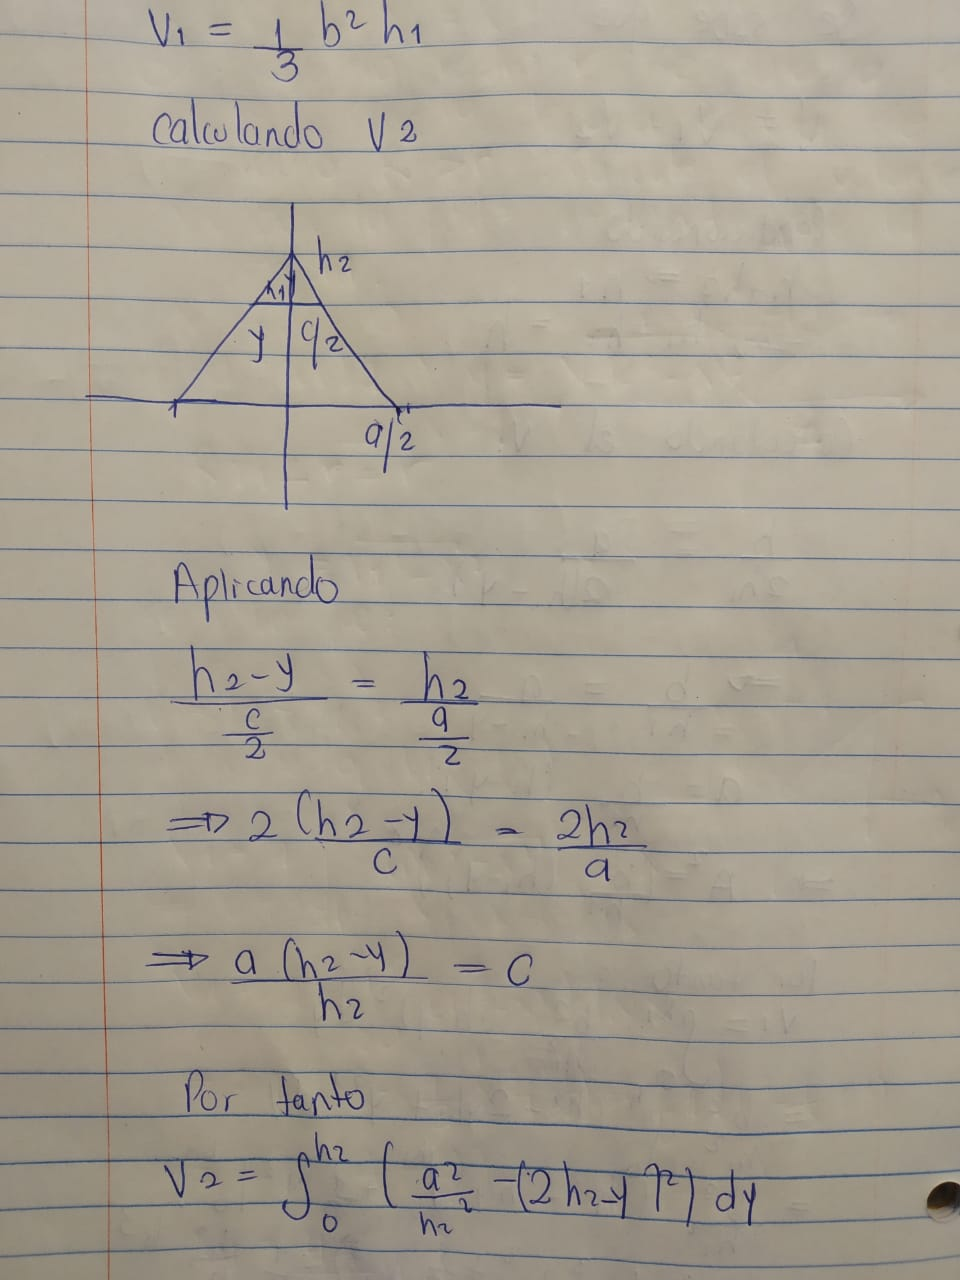 V1 = 1/3 b² h1
Calculando V2
h2
h1
y c/2
a/2
Aplicando
(h2-y)/(c/2) = h2/(a/2)
⟹ 2(h2-y)/c = 2h2/a
⟹ a(h2-y)/h2 = c
Por tanto
V2 = ∫₀^h2 (a²/h2² -(2h2-y)²) dy